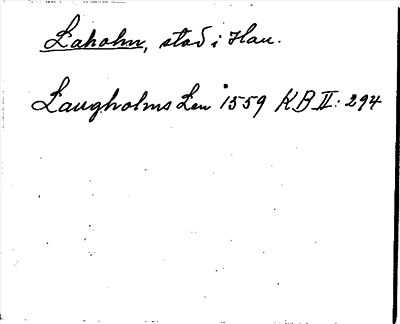 Laholm, stad i Hall.
Laugholms Len 1559 KB II: 294